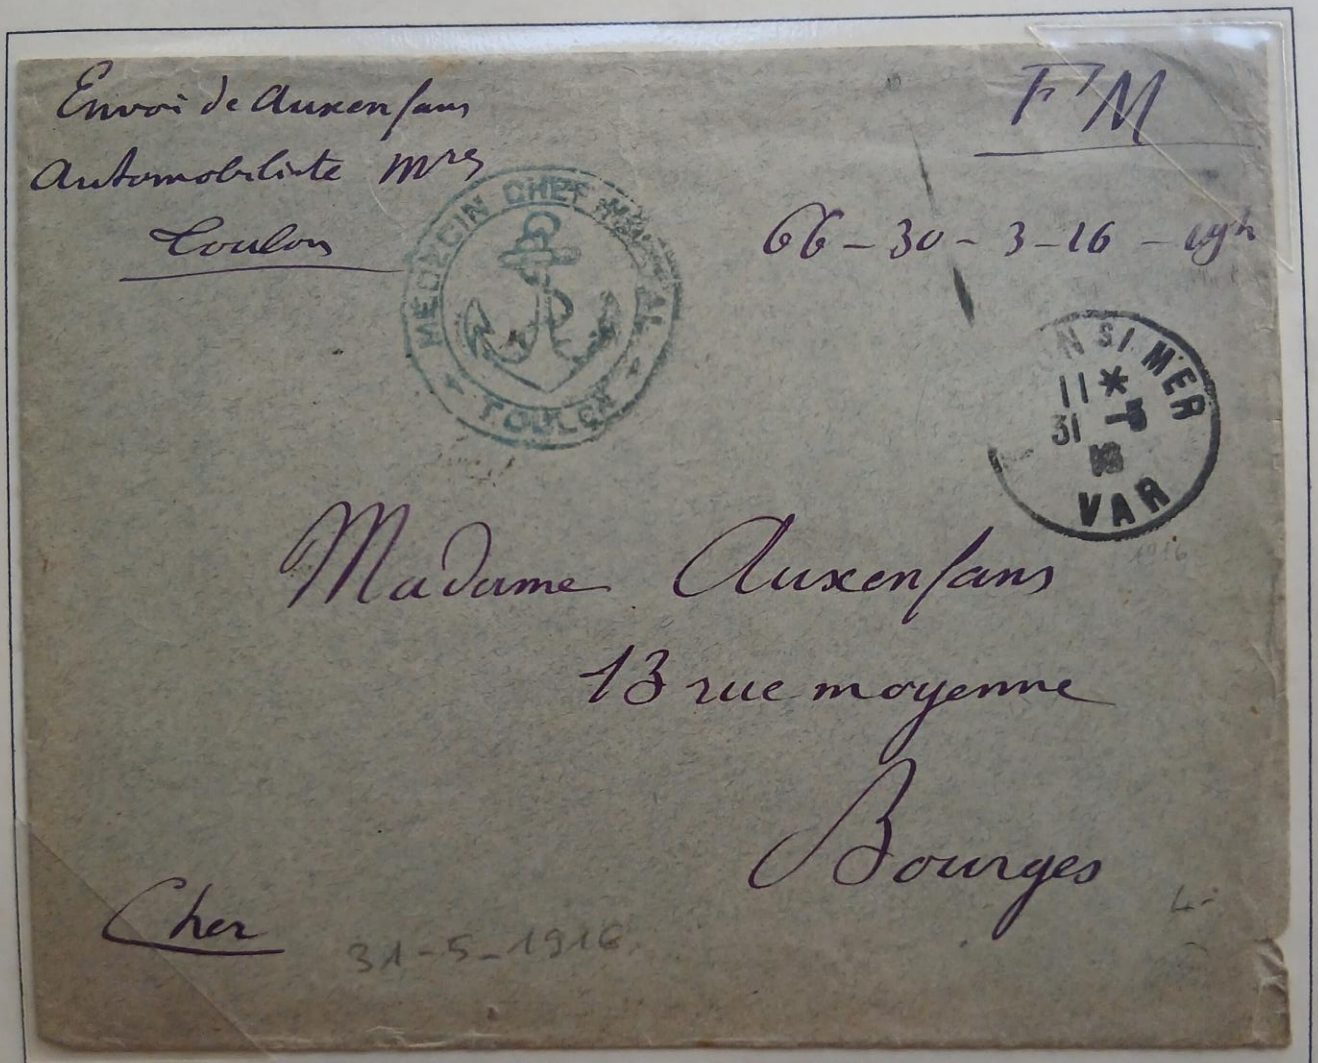 Envoi de Auxenfans
Automobiliste
Toulon
FM
66-30-3-16-19h
MÉDECIN CHEF HÔPITAL
TOULON
N S/ MER
11 *
31 -5
16
VAR
1916
Madame Auxenfans
13 rue moyenne
Bourges
Cher
31-5-1916
4-